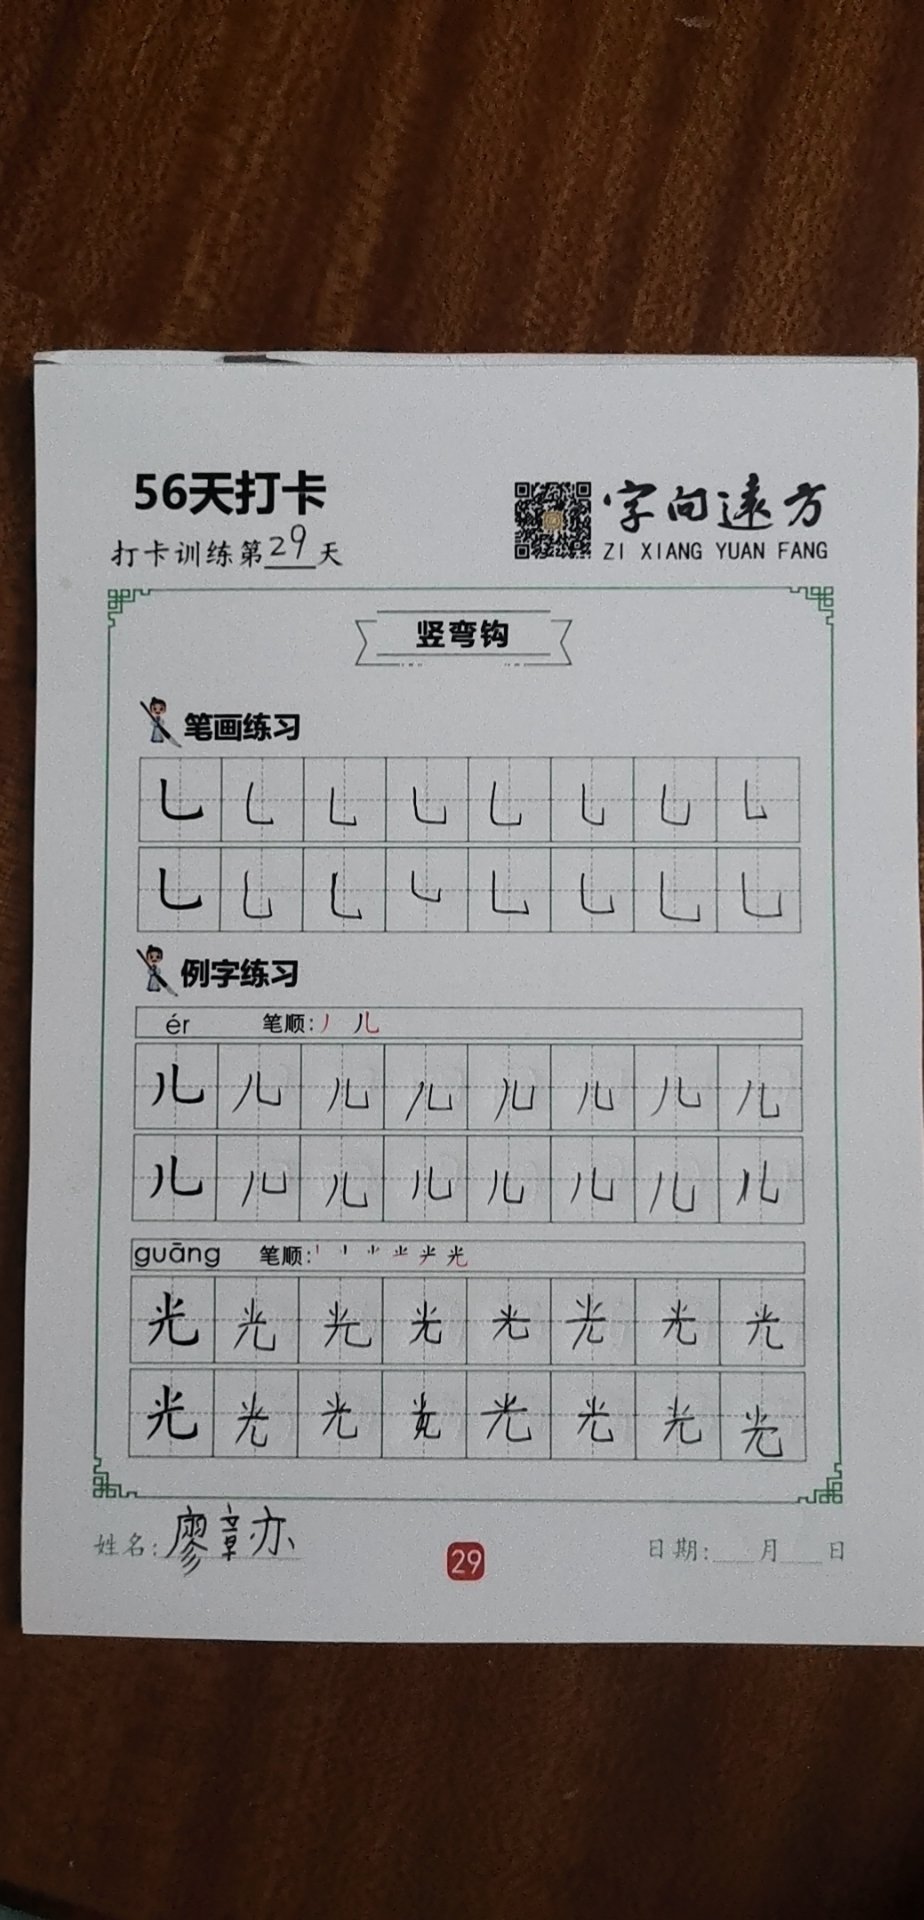 56天打卡
字向遠方
打卡训练第29天
ZI XIANG YUAN FANG
竖弯钩
笔画练习
乚 乚 乚 乚 乚 乚 乚 乚
乚 乚 乚 乚 乚 乚 乚 乚
例字练习
ér 笔顺: 丿 儿
儿 儿 儿 儿 儿 儿 儿 儿
儿 儿 儿 儿 儿 儿 儿 儿
guāng 笔顺: 光
光 光 光 光 光 光 光 光
光 光 光 光 光 光 光 光
姓名: 廖章亦 29 日期: 月 日